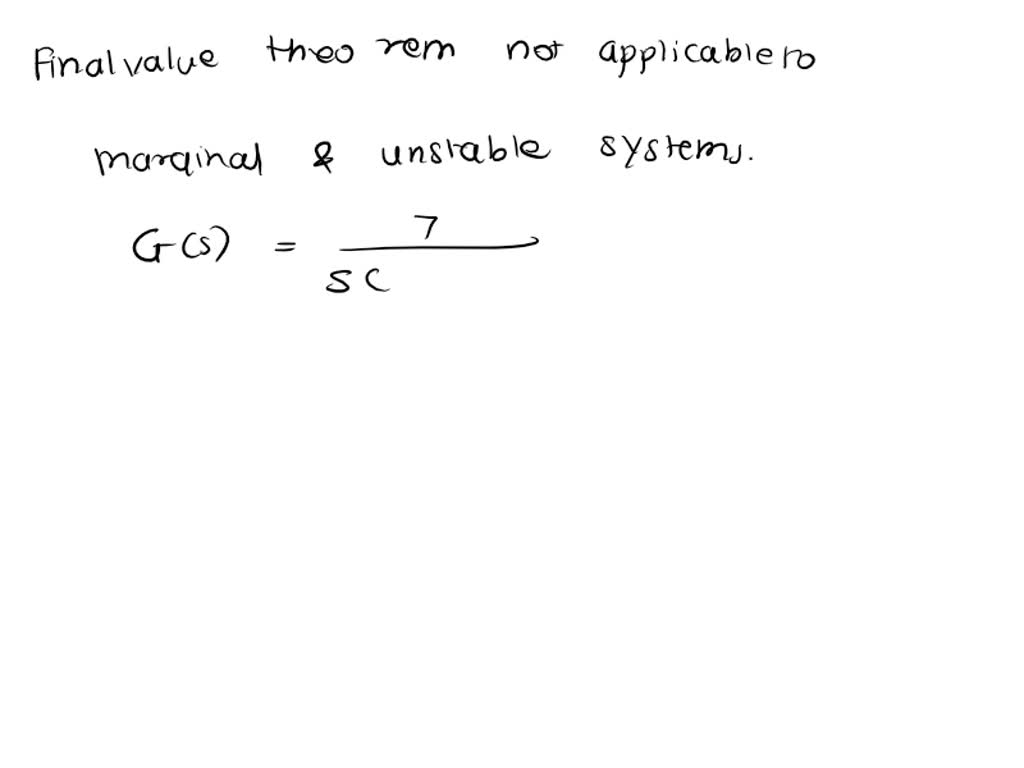 Final value theorem not applicable to
marginal & unstable systems.
G(s) = 7
s(